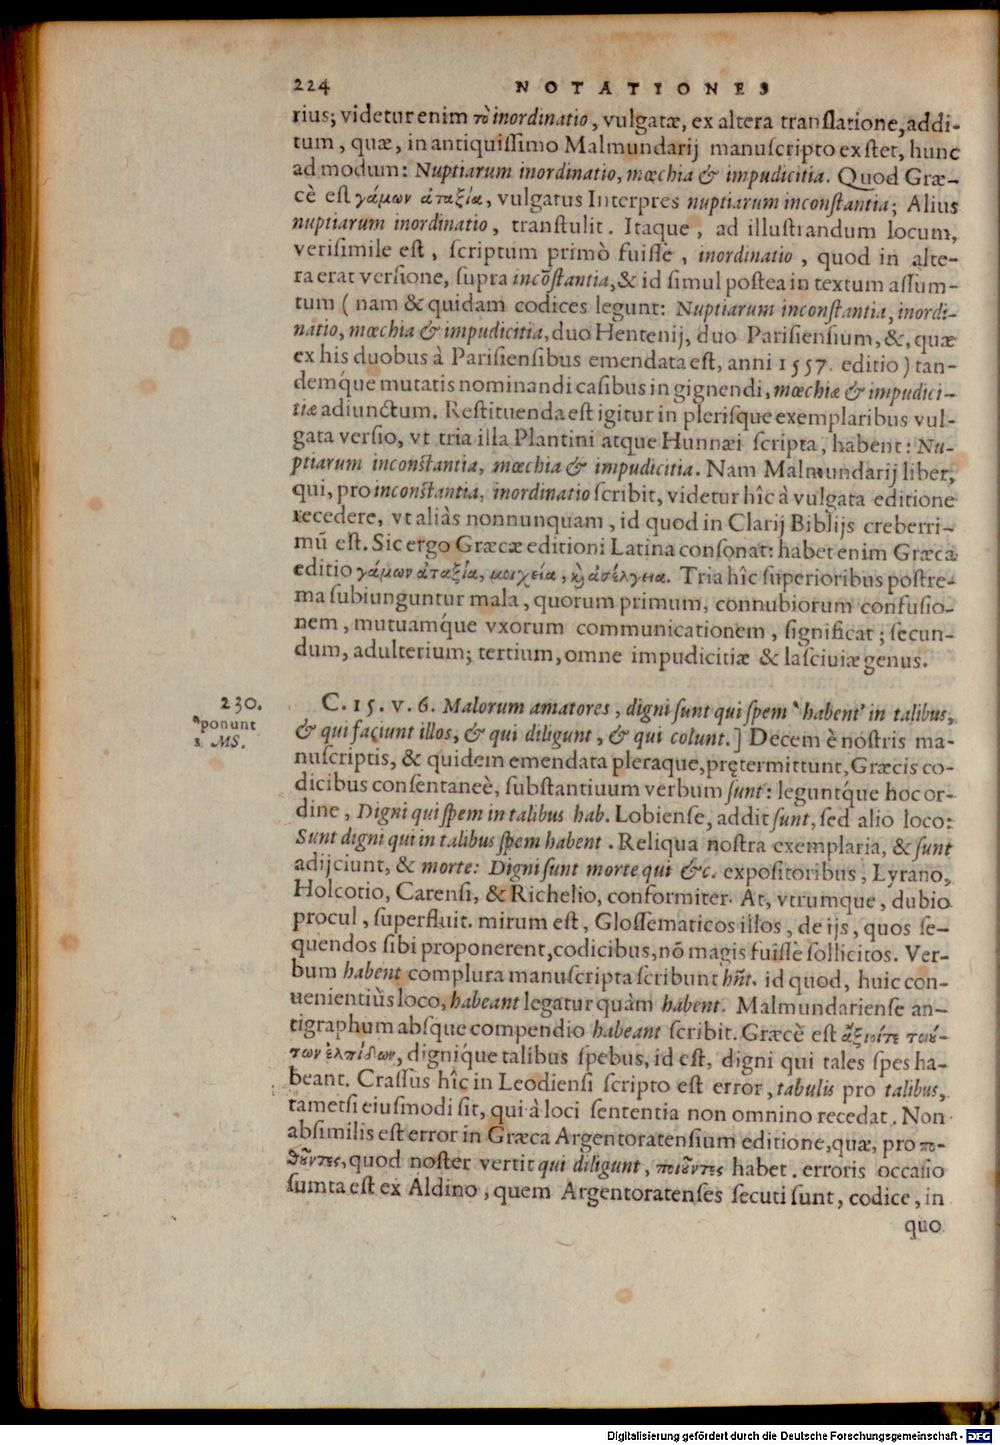 224 NOTATIONES
rius; videtur enim τὸ inordinatio, vulgatæ, ex altera translatione, addi-
tum, quæ, in antiquissimo Malmundarij manuscripto exstet, hunc
ad modum: Nuptiarum inordinatio, mœchia & impudicitia. Quod Græ-
cè est γάμων ἀταξία, vulgatus Interpres nuptiarum inconstantia; Alius
nuptiarum inordinatio, transtulit. Itaque, ad illustrandum locum,
verisimile est, scriptum primò fuisse, inordinatio, quod in alte-
ra erat versione, supra incõstantia, & id simul postea in textum assum-
tum (nam & quidam codices legunt: Nuptiarum inconstantia, inordi-
natio, mœchia & impudicitia, duo Hentenij, duo Parisiensium, &, quæ
ex his duobus à Parisiensibus emendata est, anni 1557. editio) tan-
demq́ue mutatis nominandi casibus in gignendi, mœchiæ & impudici-
tiæ adiunctum. Restituenda est igitur in plerisque exemplaribus vul-
gata versio, vt tria illa Plantini atque Hunnæi scripta, habent: Nu-
ptiarum inconstantia, mœchia & impudicitia. Nam Malmundarij liber,
qui, pro inconstantia, inordinatio scribit, videtur hîc à vulgata editione
recedere, vt aliàs nonnunquam, id quod in Clarij Biblijs creberri-
mũ est. Sic ergo Græcæ editioni Latina consonat: habet enim Græca
editio γάμων ἀταξία, μοιχεία, ϗ̀ ἀσέλγεια. Tria hîc superioribus postre-
ma subiunguntur mala, quorum primum, connubiorum confusio-
nem, mutuamq́ue vxorum communicationem, significat; secun-
dum, adulterium; tertium, omne impudicitiæ & lasciuiæ genus.
230.
ᵃponunt
s MS.
C. 15. v. 6. Malorum amatores, digni sunt qui spem ᵃ habent' in talibus,
& qui faciunt illos, & qui diligunt, & qui colunt.] Decem è nostris ma-
nuscriptis, & quidem emendata pleraque, prętermittunt, Græcis co-
dicibus consentaneè, substantiuum verbum sunt: leguntq́ue hoc or-
dine, Digni qui spem in talibus hab. Lobiense, addit sunt, sed alio loco:
Sunt digni qui in talibus spem habent. Reliqua nostra exemplaria, & sunt
adijciunt, & morte: Digni sunt morte qui &c. expositoribus, Lyrano,
Holcotio, Carensi, & Richelio, conformiter. At, vtrumque, dubio
procul, superfluit. mirum est, Glossematicos illos, de ijs, quos se-
quendos sibi proponerent, codicibus, nõ magis fuisse sollicitos. Ver-
bum habent complura manuscripta scribunt hñt. id quod, huic con-
uenientiùs loco, habeant legatur quàm habent. Malmundariense an-
tigraphum absque compendio habeant scribit. Græcè est ἄξιοίτε τοιού-
των ἐλπίδων, digniq́ue talibus spebus, id est, digni qui tales spes ha-
beant. Crassus hîc in Leodiensi scripto est error, tabulis pro talibus,
tametsi eiusmodi sit, qui à loci sententia non omnino recedat. Non
absimilis est error in Græca Argentoratensium editione, quæ, pro πο-
θοῦντες, quod noster vertit qui diligunt, ποιοῦντες habet. erroris occasio
sumta est ex Aldino, quem Argentoratenses secuti sunt, codice, in
quo
Digitalisierung gefördert durch die Deutsche Forschungsgemeinschaft - DFG